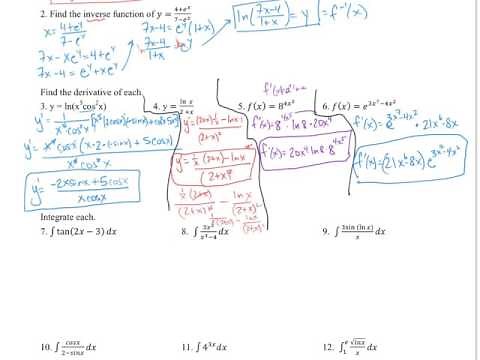 2. Find the inverse function of y = (4+eˣ)/(7−eˣ)
x = (4+eʸ)/(7−eʸ)
7x − xeʸ = 4+eʸ
7x−4 = eʸ+xeʸ
7x−4 = eʸ(1+x)
(7x−4)/(1+x) = eʸ
ln((7x−4)/(1+x)) = y = f⁻¹(x)
Find the derivative of each.
3. y = ln(x⁵cos²x)
y' =
y' = (−2xsinx+5cosx)/(xcosx)
4. y = (ln x)/(2+x)
y' = ((2+x)·1/x − lnx)/(2+x)²
y' = (1/x (2+x) − lnx)/(2+x)²
(1/x (2+x))/(2+x)² − lnx/(2+x)²
5. f(x) = 8^(4x⁵)
f'(x) = 8^(4x⁵) · ln8 · 20x⁴
f'(x) = 20x⁴ ln8·8^(4x⁵)
6. f(x) = e^(3x⁷−4x²)
f'(x) = e^(3x⁷−4x²) · 21x⁶−8x
f'(x) = (21x⁶−8x) e^(3x⁷−4x²)
Integrate each.
7. ∫ tan(2x − 3) dx
8. ∫ 3x²/(x³−4) dx
9. ∫ 3sin (ln x)/x dx
10. ∫ cosx/(2−sinx) dx
11. ∫ 4^(3x) dx
12. ∫₁ᵉ √(lnx)/x dx